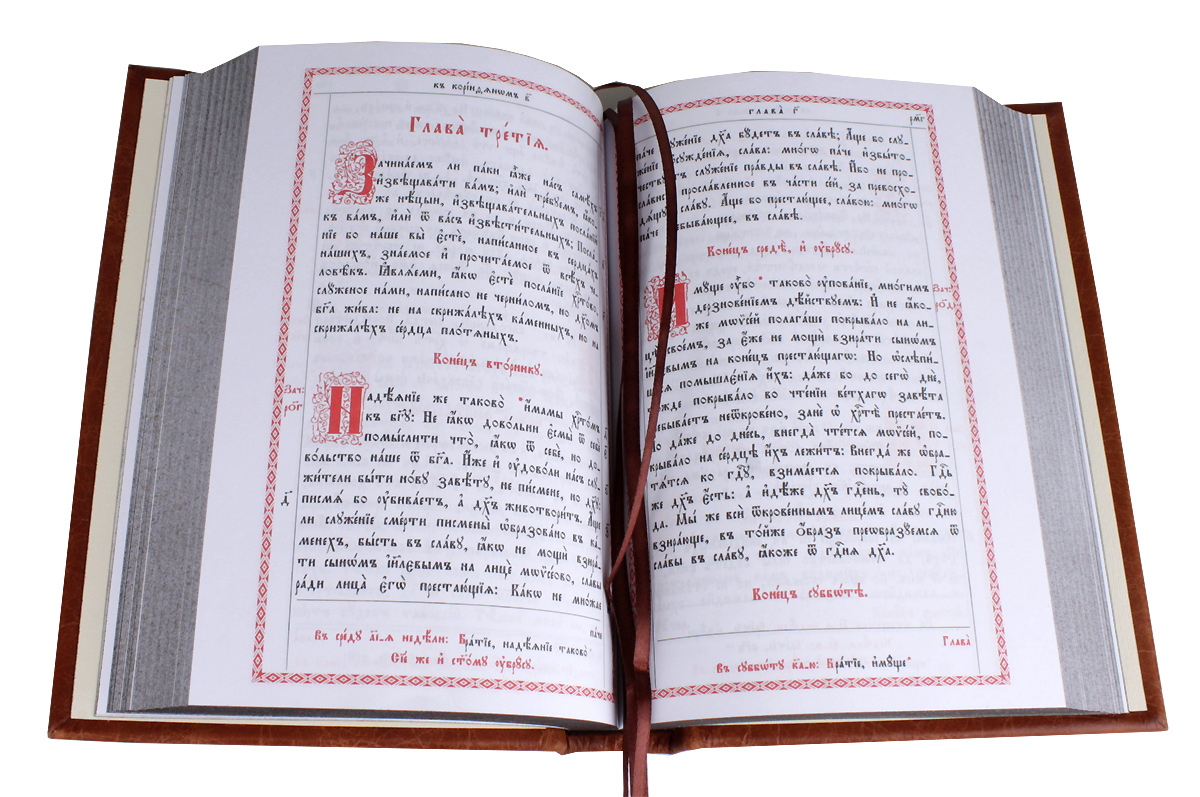 къ корінѳѧнѡмъ в҃
Глава̀ тре́тїѧ.
Зачина́емъ ли па́ки ꙗ҆̀же на́съ самѣ́хъ
и҆звѣщава́ти ва́мъ; и҆лѝ тре́буемъ, ꙗ҆́коже
нѣ́цыи, и҆звѣща́вательныхъ посла́нїй
къ ва́мъ, и҆лѝ ѿ ва́съ и҆звѣсти́тельныхъ; Посла́-
нїе бо на́ше вы̀ є҆стѐ, напи́санное въ сердца́хъ
на́шихъ, зна́емое и҆ прочита́емое ѿ всѣ́хъ че-
ловѣ́къ. Ꙗ҆влѧ́еми, ꙗ҆́кѡ є҆стѐ посла́нїе хрⷭ҇то́во
слꙋже́ное на́ми, напи́сано не черни́ломъ, но дх҃омъ
бг҃а жи́ва: не на скрижа́лѣхъ ка́менныхъ, но на
скрижа́лѣхъ се́рдца плотѧ́ныхъ.
Коне́цъ вто́рникꙋ.
Зач:
рѻ҃г
Надѣ́ѧнїе же таково̀ * и҆́мамы хрⷭ҇то́мъ
къ бг҃ꙋ: Не ꙗ҆́кѡ дово́льни є҆смы̀ ѿ себѐ
помы́слити что̀, ꙗ҆́кѡ ѿ себѐ, но до-
во́льство на́ше ѿ бг҃а. И҆́же и҆ ᲂу҆дово́ли на́съ слꙋ-
жи́тели бы́ти но́вꙋ завѣ́тꙋ, не пи́смене, но дх҃ꙋ:
писмѧ̀ бо ᲂу҆бива́етъ, а҆ дх҃ъ животвори́тъ. А҆́ще
ли слꙋже́нїе сме́рти писмены̀ ѡ҆бразо́вано въ ка́-
менехъ, бы́сть въ сла́вꙋ, ꙗ҆́кѡ не мощѝ взира́-
ти сынѡ́мъ і҆и҃левымъ на лицѐ мѡѷсе́ово, сла́вы
ра́ди лица̀ є҆гѡ̀ престаю́щїѧ: Ка́кѡ не мно́жае
д҃
па́че
Въ сре́дꙋ а҃і-ѧ недѣ́ли: Бра́тїе, надѣ́ѧнїе таково̀
Сїе́ же и҆ ст҃о́мꙋ ᲂу҆брꙋ́сꙋ.
глава̀ г҃
рм҃г
па́че слꙋже́нїе дх҃а бꙋ́детъ въ сла́вѣ; А҆́ще бо слꙋ-
же́нїе ѡ҆сꙋжде́нїѧ, сла́ва: мно́гѡ па́че и҆збы́то-
че́ствꙋетъ слꙋже́нїе пра́вды въ сла́вѣ. И҆́бо не про-
сла́висѧ просла́вленное въ ча́сти се́й, за превосхо-
дѧ́щꙋю сла́вꙋ. А҆́ще бо престаю́щее, сла́вою: мно́гѡ
па́че пребыва́ющее, въ сла́вѣ.
Коне́цъ средѣ̀, и҆ ᲂу҆брꙋ́сꙋ.
И҆мꙋ́ще ᲂу҆̀бо * таково̀ ᲂу҆пова́нїе, мно́гимъ
дерзнове́нїемъ дѣ́йствꙋемъ: И҆ не ꙗ҆́ко-
же мѡѷсе́й полага́ше покрыва́ло на ли-
цѣ̀ свое́мъ, за є҆́же не мощѝ взира́ти сынѡ́мъ
і҆и҃левымъ на коне́цъ престаю́щагѡ: Но ѡ҆слѣпи́-
шасѧ помышле́нїѧ и҆́хъ: да́же бо до сегѡ̀ днѐ,
то́жде покрыва́ло во чте́нїи ве́тхагѡ завѣ́та
пребыва́етъ неѿкрове́но, занѐ ѡ҆ хрⷭ҇тѣ̀ престае́тъ.
Но да́же до дне́сь, внегда̀ чте́тсѧ мѡѷсе́й, по-
крыва́ло на се́рдцѣ и҆́хъ лежи́тъ: Внегда́ же ѡ҆бра-
тѧ́тсѧ ко гдⷭ҇ꙋ, взима́етсѧ покрыва́ло. Гдⷭ҇ь
же дх҃ъ є҆́сть: а҆ и҆дѣ́же дх҃ъ гдⷭ҇ень, тꙋ̀ свобо́-
да. Мы́ же всѝ ѿкрове́ннымъ лице́мъ сла́вꙋ гдⷭ҇ню
взира́юще, въ то́йже ѻ҆́бразъ преѡбразꙋ́емсѧ ѿ
сла́вы въ сла́вꙋ, ꙗ҆́коже ѿ гдⷭ҇нѧ дх҃а.
Коне́цъ сꙋббѡ́тѣ.
Глава̀
Въ сꙋббѡ́тꙋ к҃а-ю: Бра́тїе, и҆мꙋ́ще *